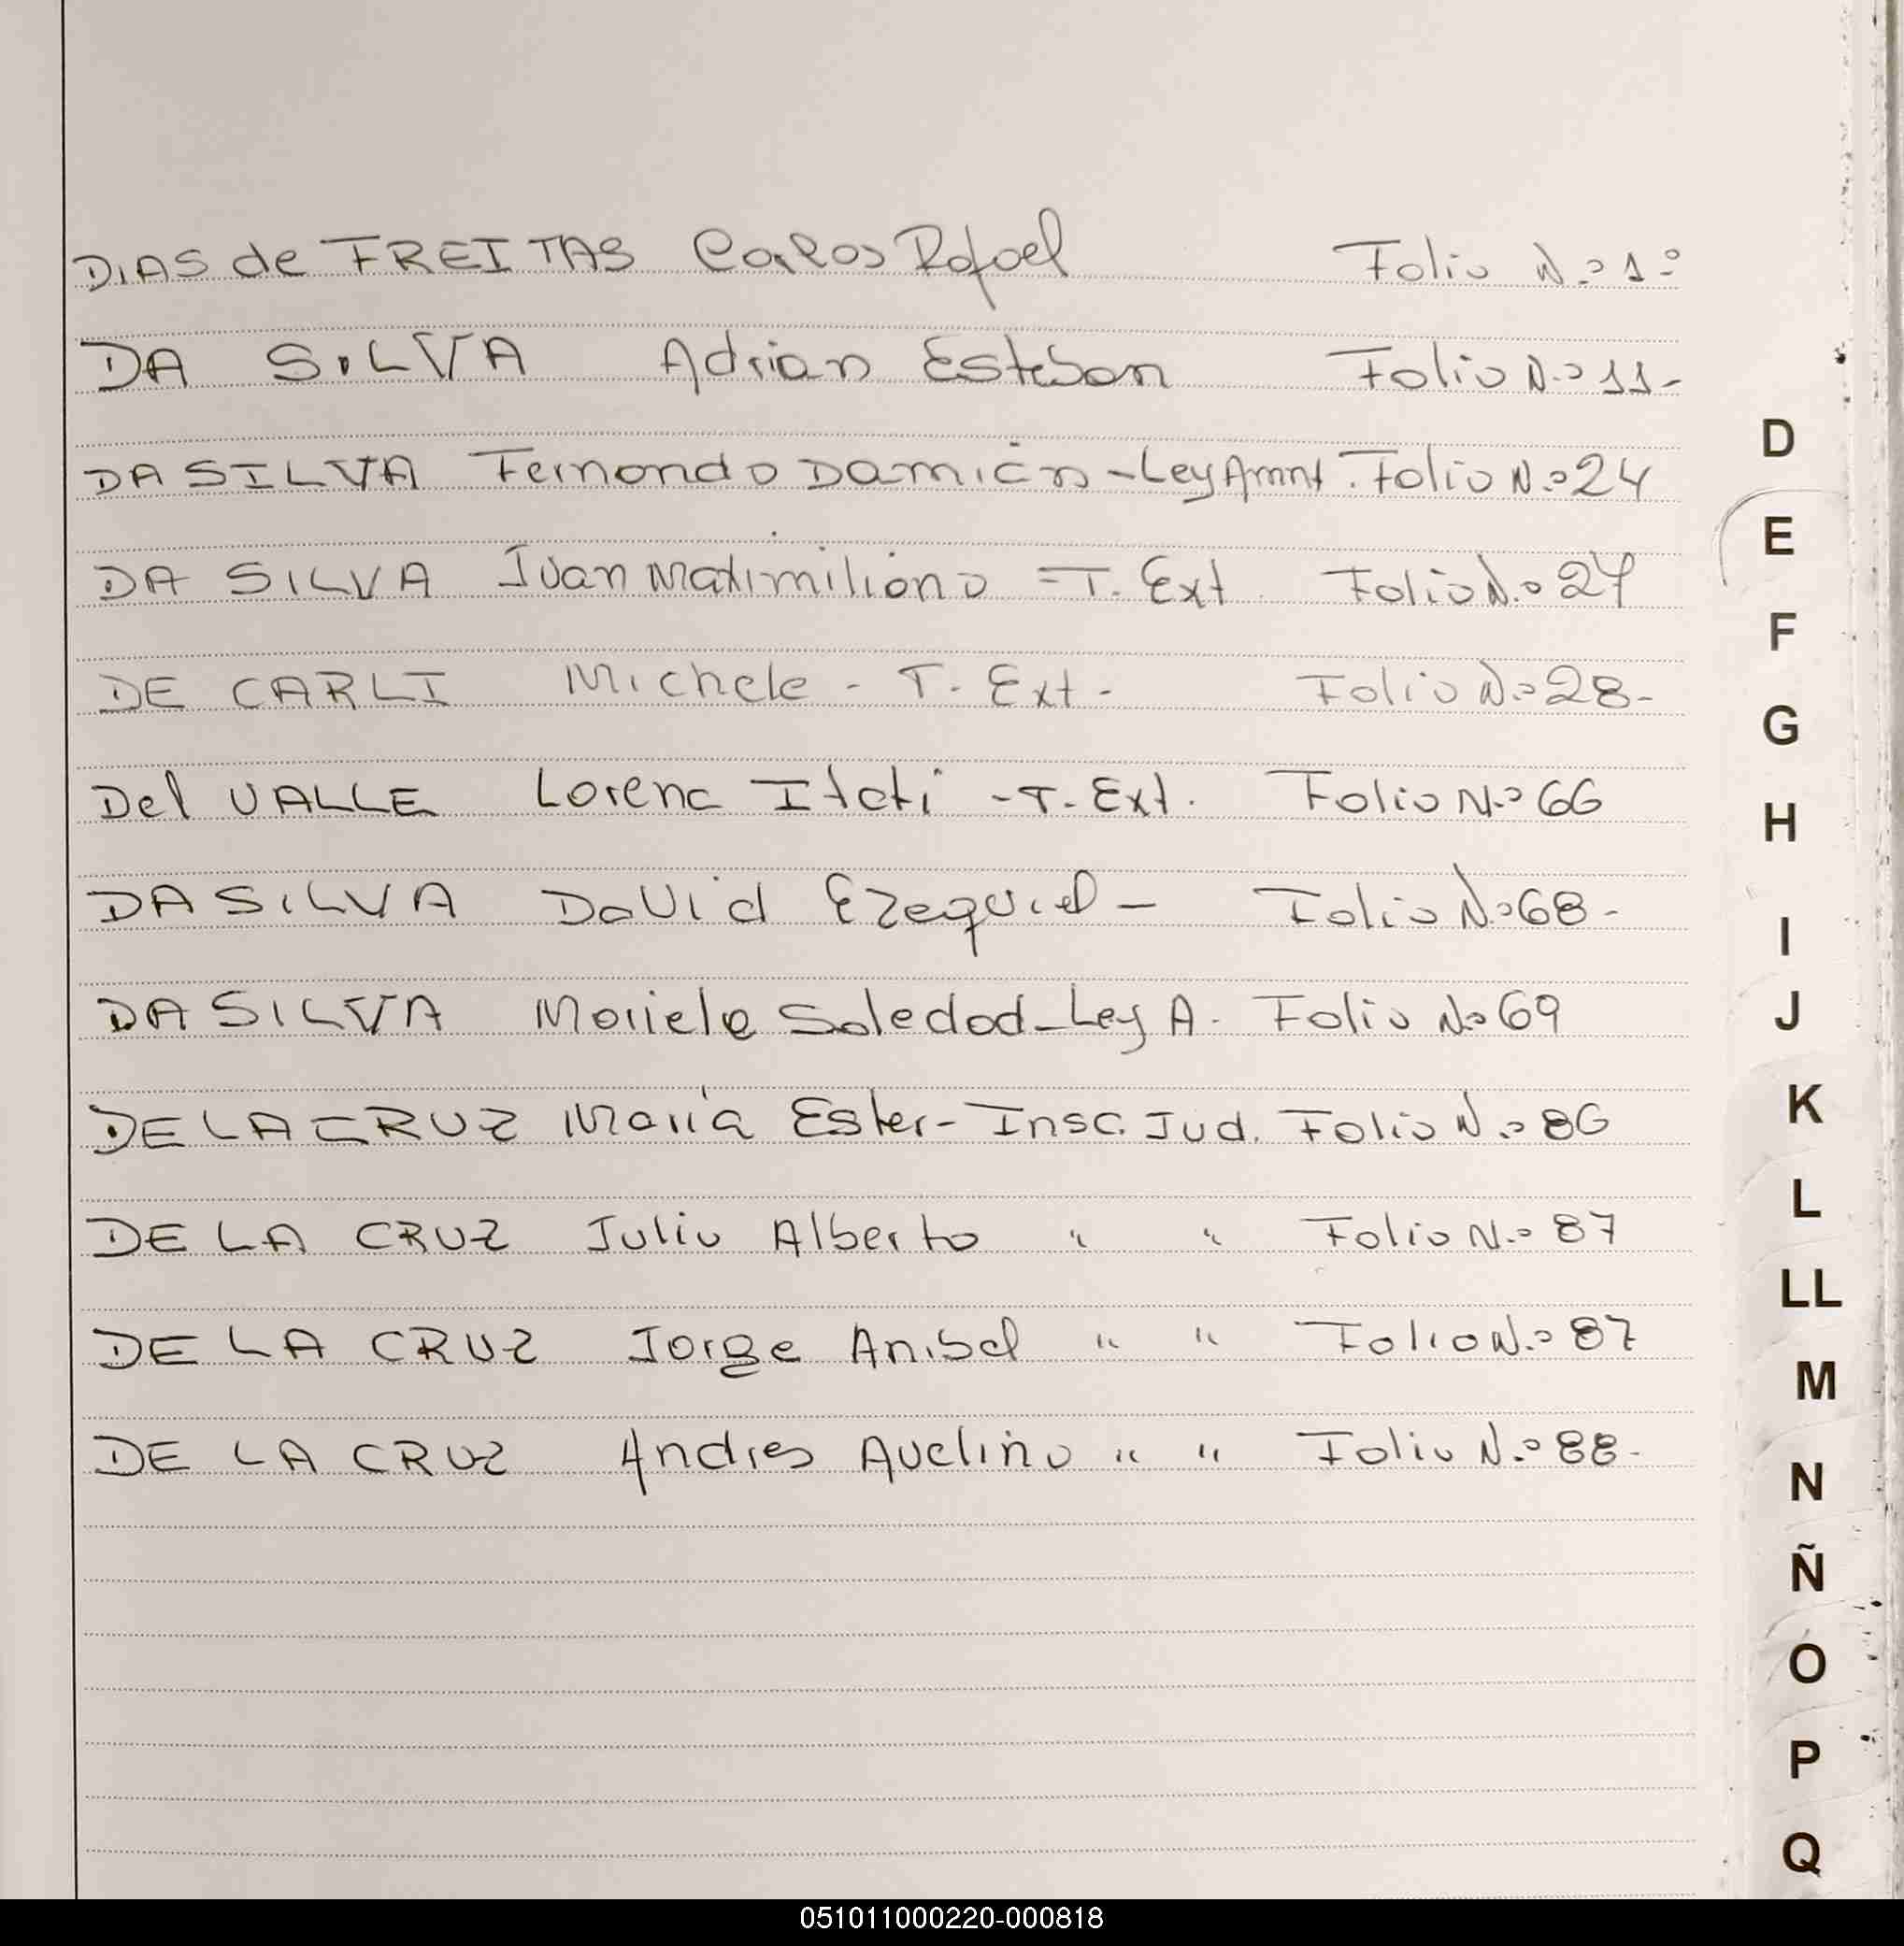 DIAS de FREITAS Carlos Rafael Folio N.º 1º
DA SILVA Adrian Esteban Folio N.º 11-
DA SILVA Fernando Damián - Ley Amnt. Folio N.º 24
DA SILVA Juan Maximiliano - T. Ext Folio N.º 27
DE CARLI Michele - T. Ext - Folio N.º 28-
Del VALLE Lorena Itati - T. Ext. Folio N.º 66
DA SILVA David Ezequiel - Folio N.º 68-
DA SILVA Mariela Soledad - Ley A. Folio Nº 69
DE LA CRUZ María Ester - Insc. Jud. Folio N.º 86
DE LA CRUZ Julio Alberto " " Folio N.º 87
DE LA CRUZ Jorge Anibal " " Folio N.º 87
DE LA CRUZ Andres Avelino " " Folio N.º 88-
D
E
F
G
H
I
J
K
L
LL
M
N
Ñ
O
P
Q
051011000220-000818